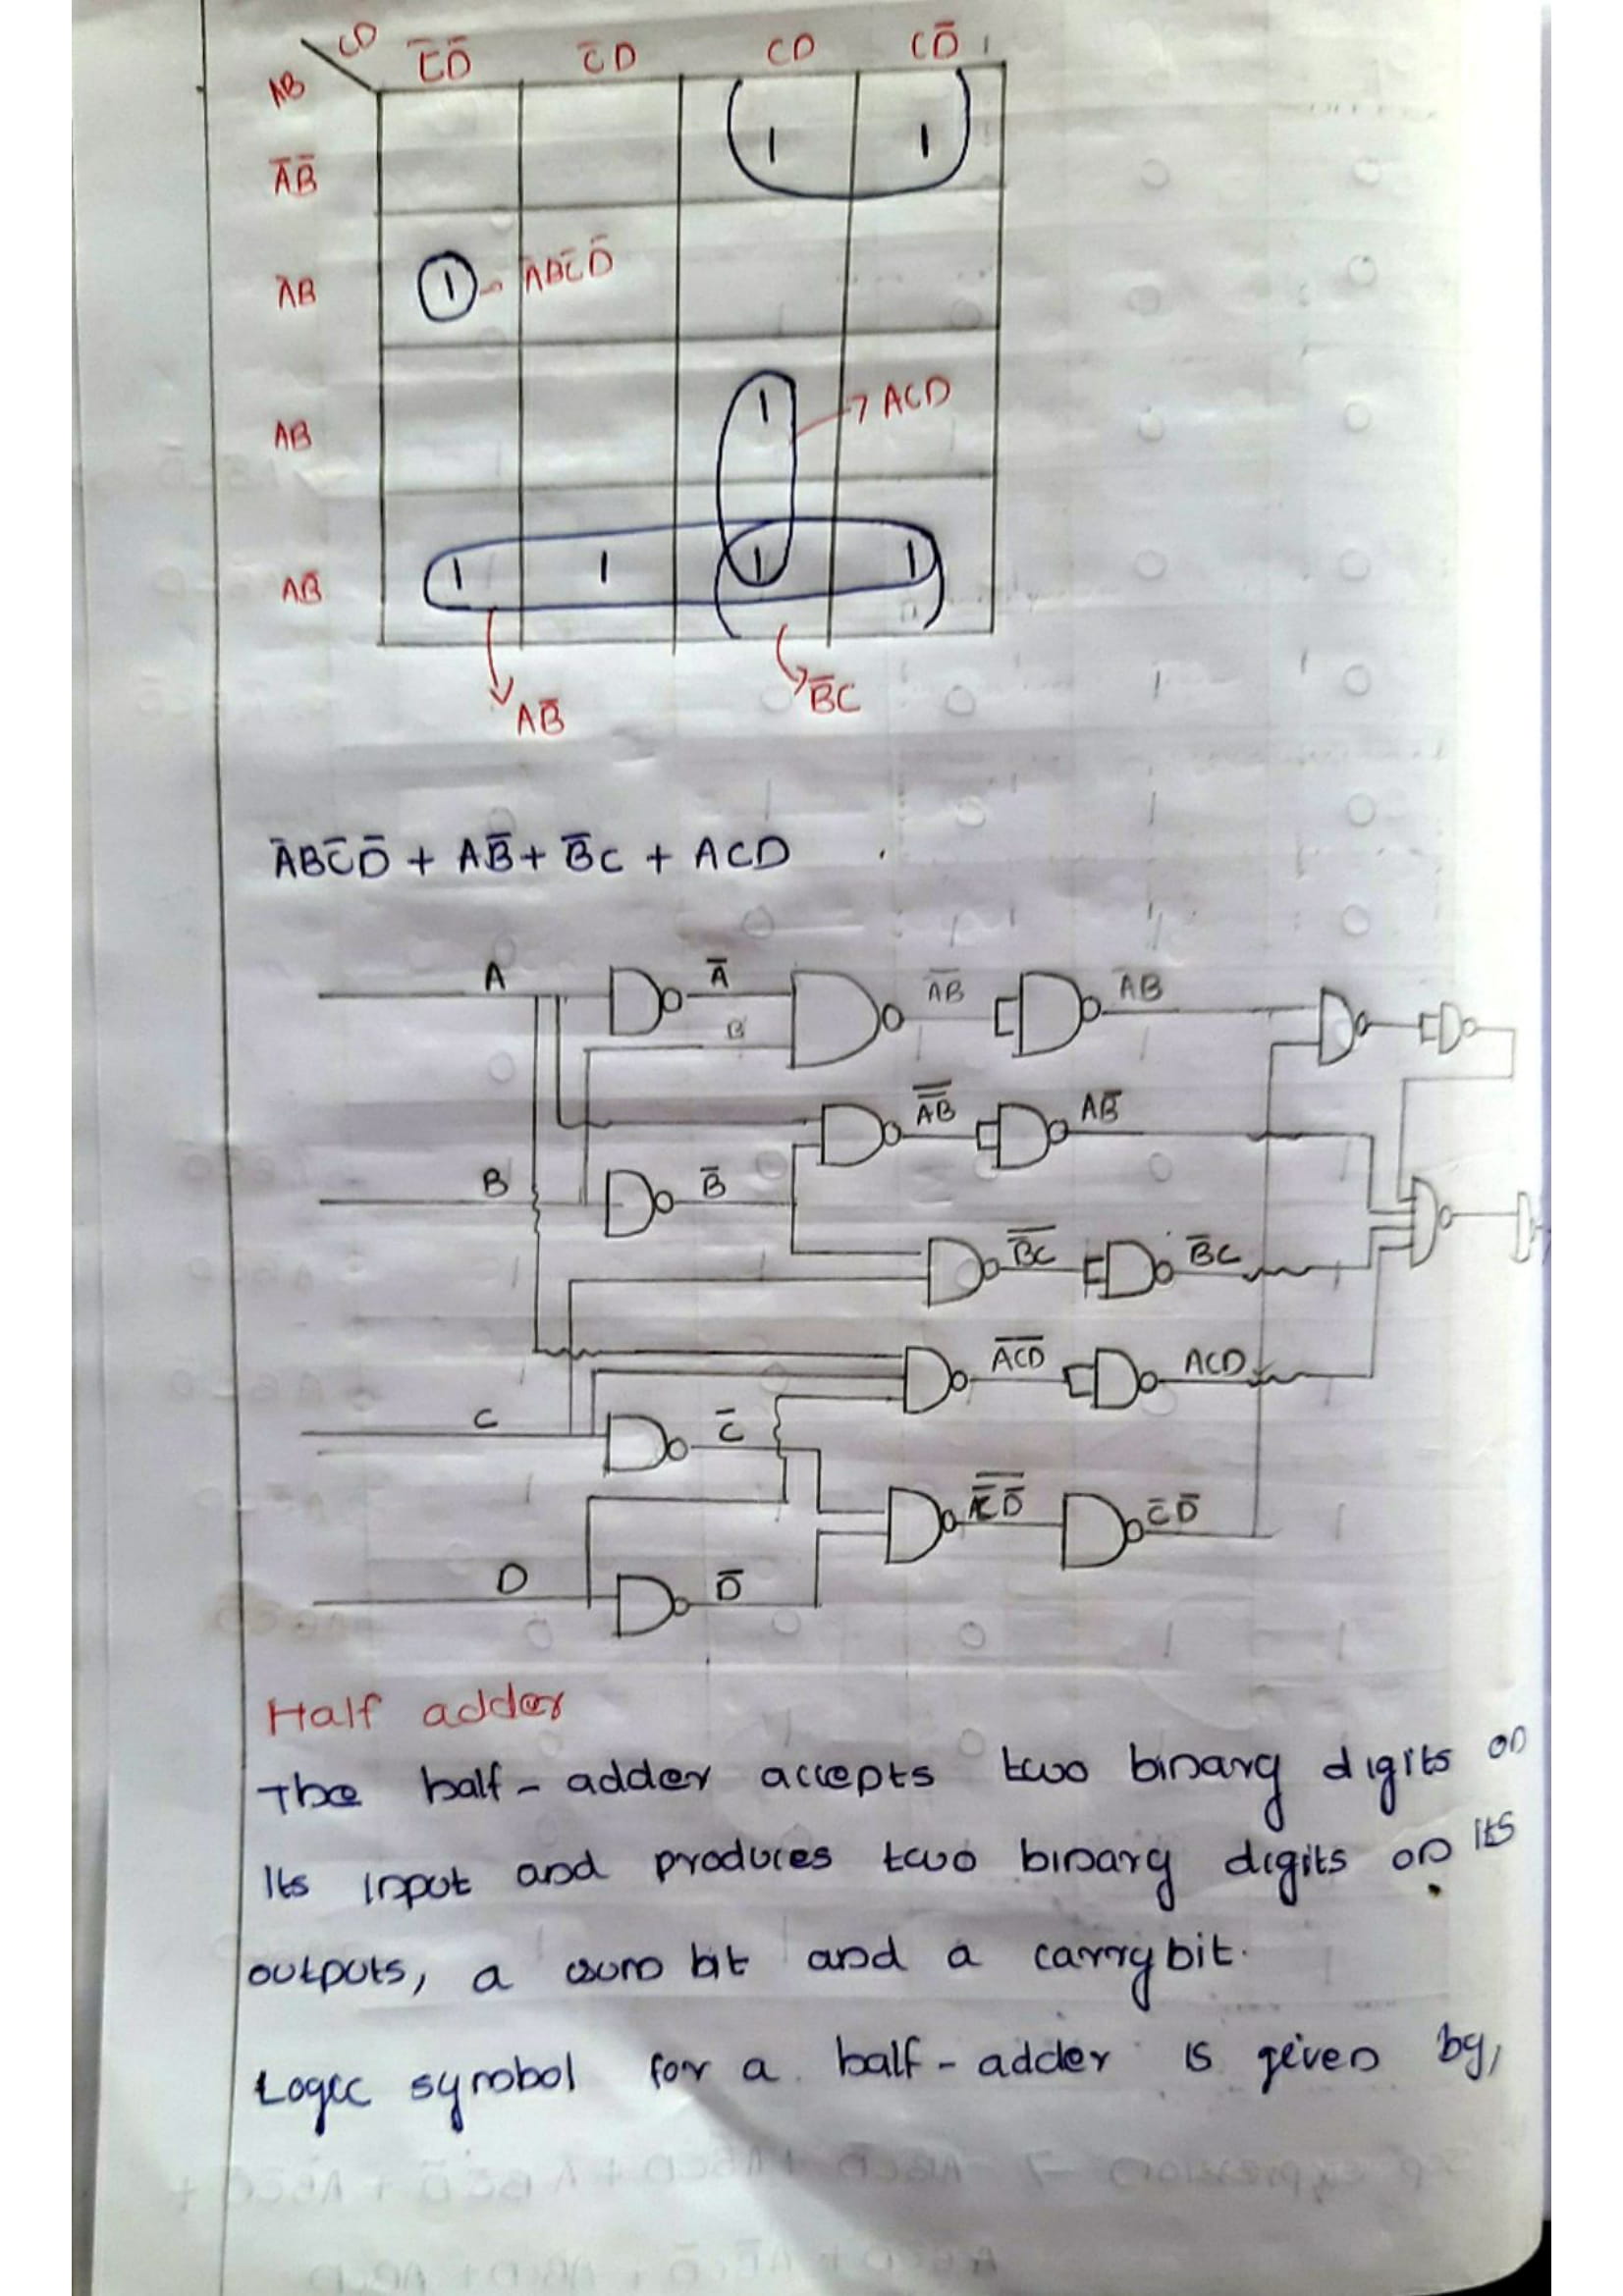 CD C̅D̅ C̅D CD CD̅
AB
A̅B̅ 1 1
A̅B 1 - A̅BC̅D̅
AB 1 → ACD
AB̅ 1 1 1 1
AB̅ B̅C
A̅BC̅D̅ + AB̅ + B̅C + ACD
A A̅ A̅B A̅B
B
A̅B̅ AB̅
B B̅
B̅C̅ B̅C
A̅C̅D̅ ACD
C C̅
C̅D̅ C̅D̅
D D̅
Half adder
The half-adder accepts two binary digits on
Its input and produces two binary digits on its
outputs, a sum bit and a carry bit.
Logic symbol for a half-adder is given by,